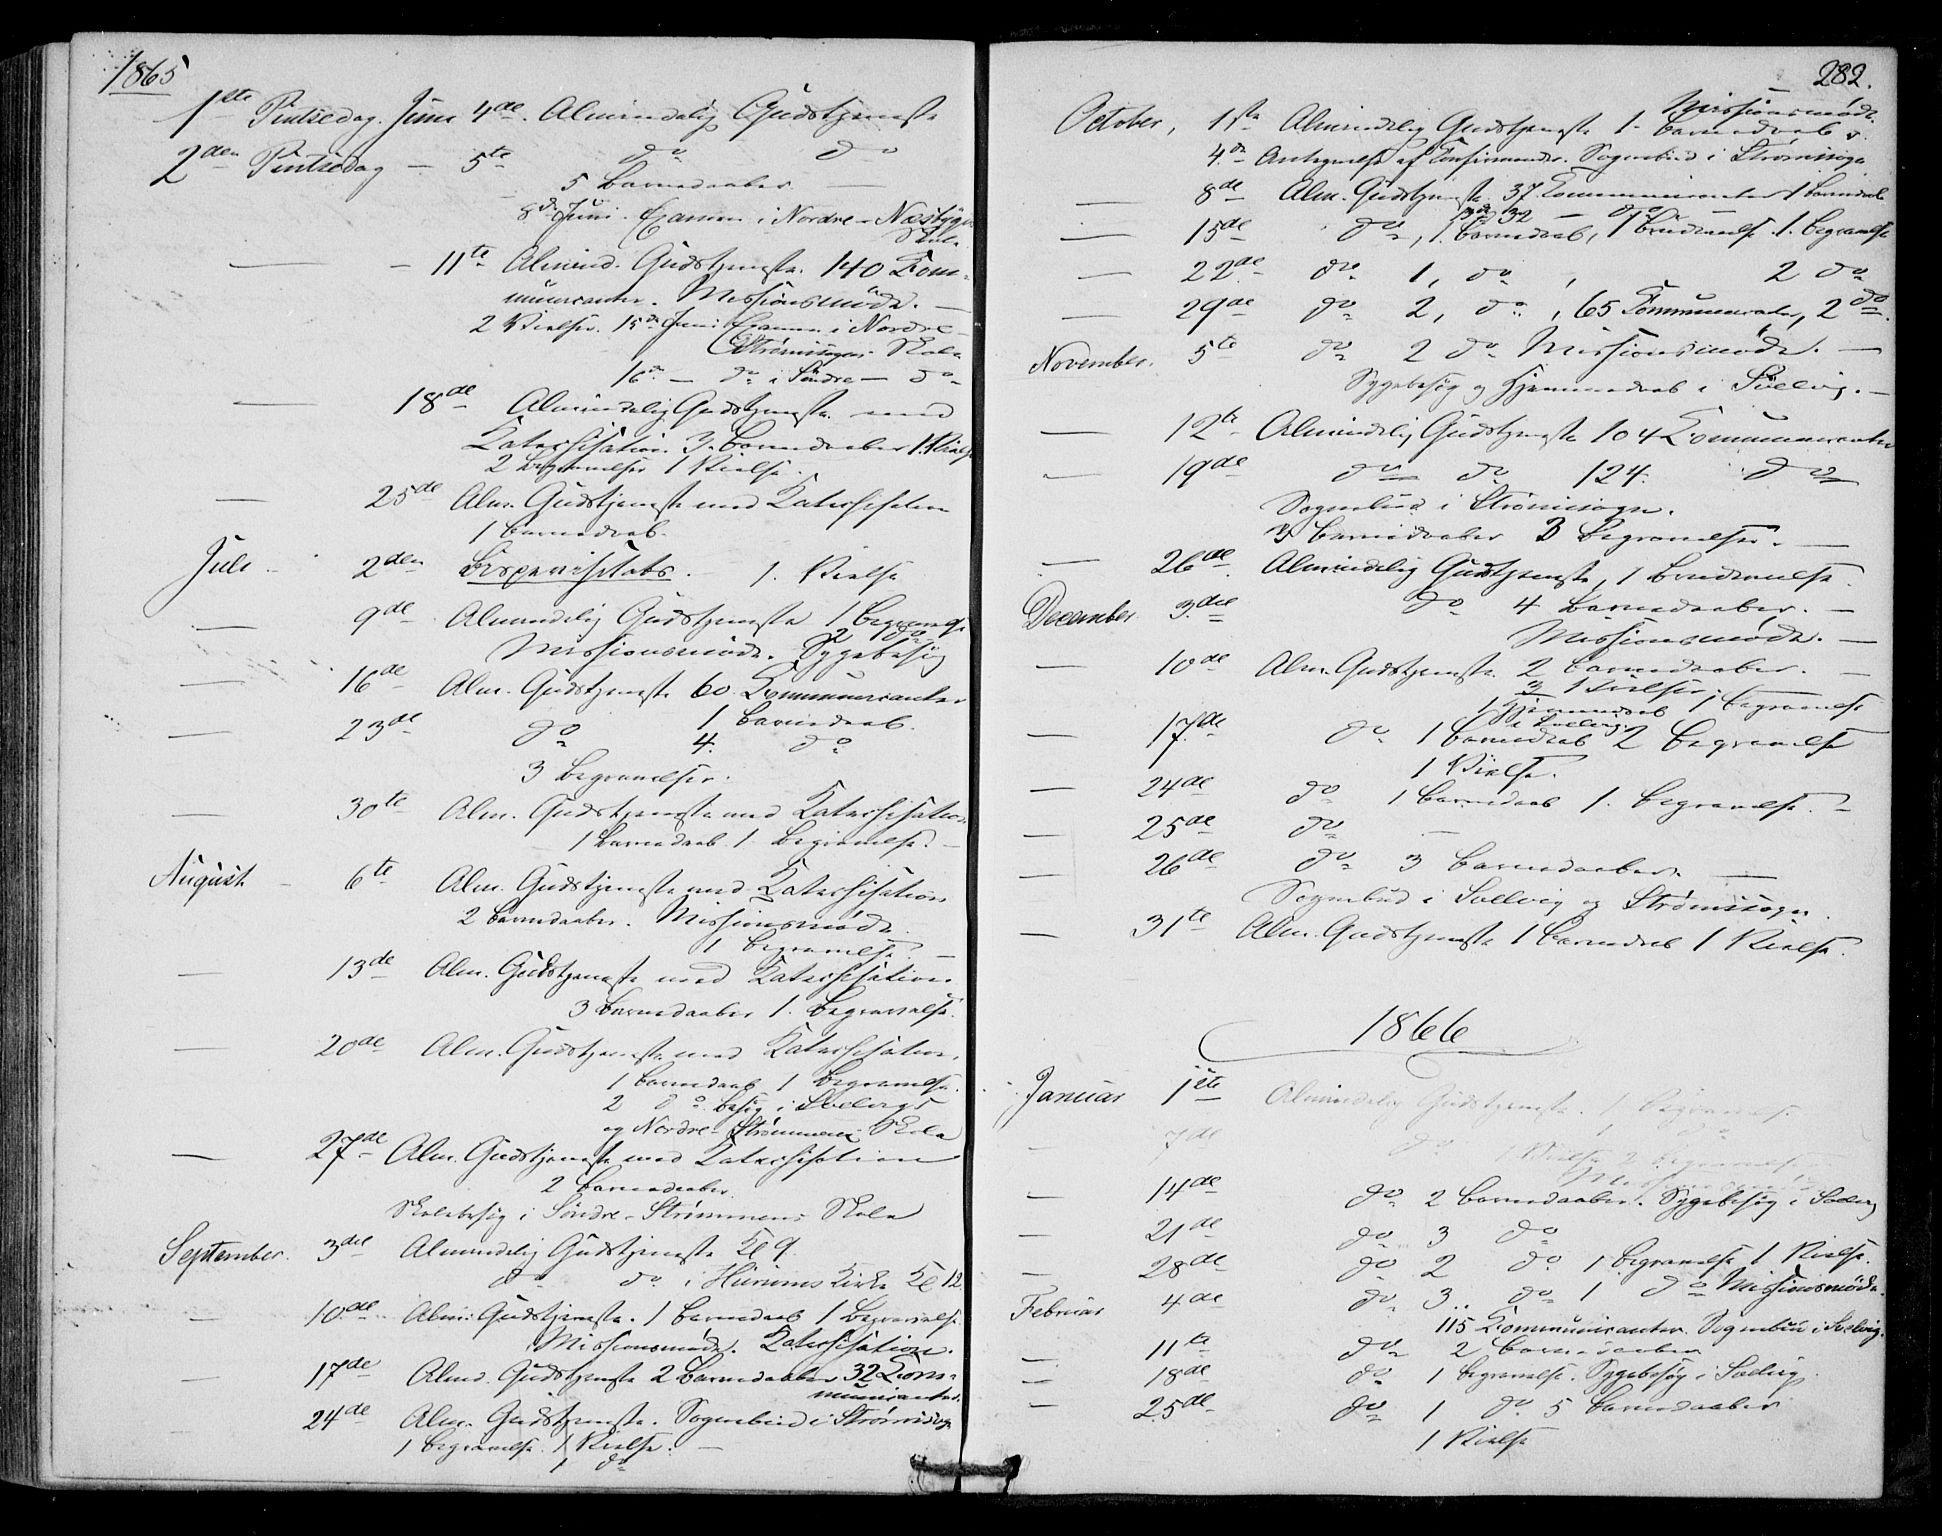 1865
1ste Pintsedag. Juni 4de. Almindelig Gudstjeneste
2den Pintsedag — 5te do do
5 Barnedaaber. —
8de Juni. Examen i Nordre-Næsbygdens
Skole
— 11te Almind. Gudstjeneste. 140 Com-
municanter. Missionsmøde. —
2 Vielser. 15de Juni Examen i Nordre-
Strømssogns Skole
16de — do i Søndre — do
— 18de Almindelig Gudstjeneste med
Katechisation. 3 Barnedaaber 1 Vielse
2 Begravelser 1 Vielse.
— 25de Alm. Gudstjeneste med Katechisation
1 Barnedaab.
Juli. 2den Bispevisitats. 1. Vielse
— 9de Almindelig Gudstjeneste 1 Begravelse
2 do
Missionsmøde. Sygebesøg
— 16de Alm. Gudstjeneste 60 Communicanter
1 Barnedaab.
— 23de do 4. do
3 Begravelser.
— 30te Alm. Gudstjeneste med Katechisation
1 Barnedaab. 1. Begravelse. —
August — 6te Alm. Gudstjeneste med Katechisation
2 Barnedaaber. Missionsmøde.
1 Begravelse. —
— 13de Alm. Gudstjeneste med Katechisation
3 Barnedaaber 1. Begravelse.
— 20de Alm. Gudstjeneste med Katechisation.
1 Barnedaab 1 Begravelse.
2 do. Besøg i Svelvigs
og Nordre-Strømmens Skole
— 27de Alm. Gudstjeneste med Katechisation
2 Barnedaaber.
Skolebesøg i Søndre-Strømmens Skole
September. 3die Almindelig Gudstjeneste Kl 9.
do do i Hurums Kirke Kl 12
— 10de Alm. Gudstjeneste. 1 Barnedaab 1 Begravelse
Missionsmøde. Katechisation.
— 17de Almd. Gudstjeneste 2 Barnedaaber 32 Com-
municanter.
24de Alm. Gudstjeneste. Sognebud i Strømssogn
1 Begravelse. 1 Vielse. —
1 do
282.
Missionsmøde.
October, 1ste Almindelig Gudstjeneste 1. Barnedaab
4de Antegnelse af Confirmander. Sognebud i Strømssogn
— 8de Alm. Gudstjeneste 37 Communicanter 1 Barnedaab
32 — do
— 15de do, 1. Barnedaab, 1 Brudevielse. 1. Begravelse
— 22de do 1, do, 2 do
— 29de do 2, do, 65 Communicanter, 2 do.
November. 5te do 2 do Missionsmøde. —
Sygebesøg og Hjemmedaab i Svelvig. —
— 12te Almindelig Gudstjeneste 104 Communicanter
— 19de do do 124. do
Sognebud i Strømssogn.
3 Barnedaaber 3 Begravelser. —
— 26de Almindelig Gudstjeneste, 1 Brudevielse.
December 3die do 4 Barnedaaber. —
Missionsmøde. —
— 10de Alm. Gudstjeneste. 2 Barnedaaber. —
3 Vielser.
1 Hjemmedaab 1 Begravelse
i Svelvig.
— 17de do 1 Barnedaab 2 Begravelse
1 Vielse.
— 24de do 1 Barnedaab 1. Begravelse. —
— 25de do —
— 26de do 3 Barnedaaber. —
Sognebud i Svelvig og Strømssogn.
— 31te Alm. Gudstjeneste 1 Barnedaab 1 Vielse.
1866
Januar 1ste Almindelig Gudstjeneste. 1 Begravelse.
1 do
— 7de do 1 Vielse 2 Begravelser
Missionsmøde
— 14de do 2 Barnedaaber. Sygebesøg i Svelvig
— 21de do 3 do
— 28de do 2 do 1 Begravelse 1 Vielse.
Februar 4de do 3.. do 1 do Missionsmøde.
115 Communicanter. Sognebud i Svelvig.
— 11te do 2 Barnedaaber
— 18de do 1 Begravelse. Sygebesøg i Svelvig.
— 25de do 1 do. 5 Barnedaaber
1 Vielse